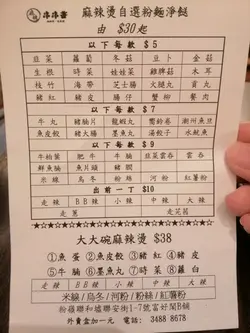 串串香
麻辣燙自選粉麵淨餸
由 $30起
以下每款 $5
韮菜 蘿蔔 冬菇 豆卜 金菇
生根 時菜 娃娃菜 雞脾菇 木耳
枝竹 海帶 芝士腸 大腸
豬紅 豬皮 腸仔 蟹柳 餐肉
以下每款 $7
牛丸 豬頸片 龍蝦丸 響鈴卷 潮州魚旦
魚皮餃 豬大腸 墨魚丸 湯餃子 水魷魚
以下每款 $9
牛柏葉 肥牛 牛𦟌 韮菜雲吞 雲吞
鮮魚腩 魚片頭 豬
米線 烏冬 粉絲 河粉 紅薯粉
出前一丁 $10
走辣 BB辣 小辣 中辣 大辣
走葱 走芫茜
大大碗麻辣燙 $38
①魚蛋 ②魚皮餃 ③豬紅 ④豬皮
⑤牛𦟌 ⑥墨魚丸 ⑦時菜 ⑧蘿白
走辣 BB辣 小辣 中辣 大辣
米線/烏冬/河粉/粉絲/紅薯粉
粉嶺聯和墟聯安街1-7號富好閣B舖
外賣盒加一元 電話：3488 8678